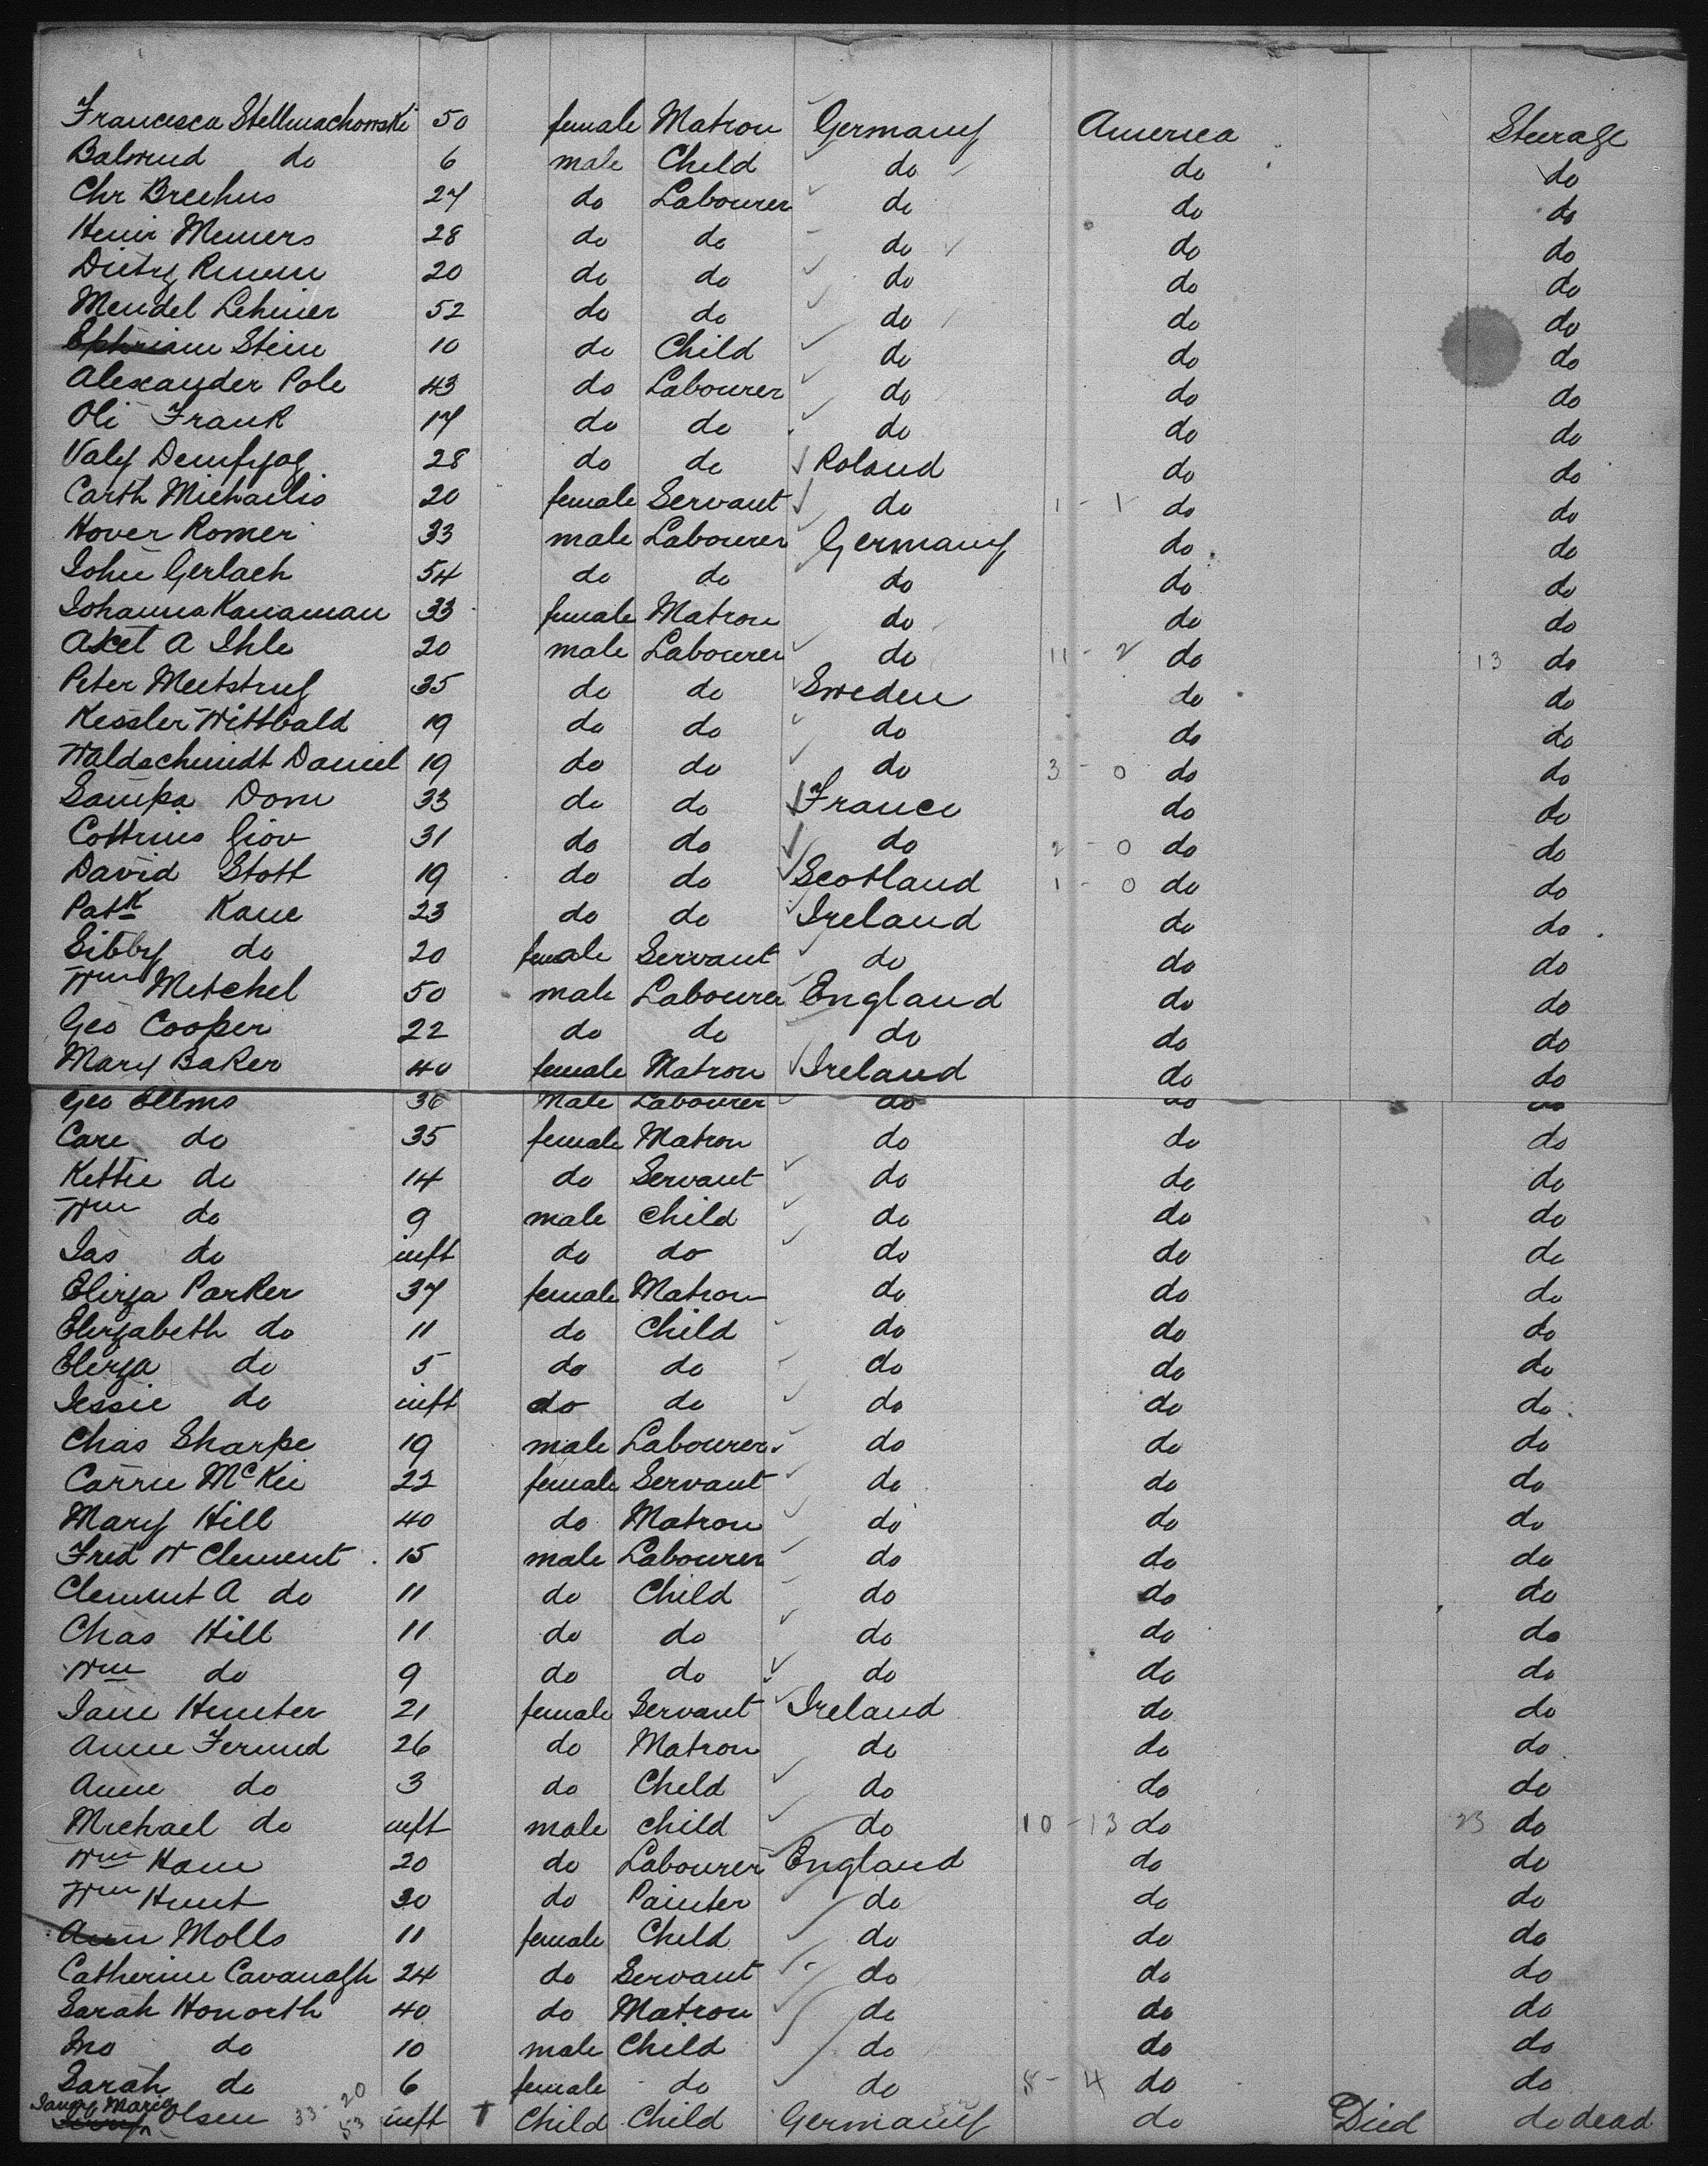 Francesca Stellmachowski 50 female Matron Germany America Steerage
Balwud do 6 male Child do do do
Chr Brechus 27 do Labourer do do do
Heinr Memers 28 do do do do do
Dietz 20 do do do do do
Mendel Lehmer 52 do do do do do
Ephriam Stein 10 do Child do do do
Alexander Pole 43 do Labourer do do do
Oli Frank 17 do do do do do
Valy 28 do do Poland do do
Carth Michailis 20 female Servant do 1 - 1 do do
Hover Romer 33 male Labourer Germany do do
John Gerlach 54 do do do do do
Johanna Kanaman 33 female Matron do do do
Axel A Ihle 20 male Labourer do 11 - 2 do 13 do
Peter Meetstruf 35 do do Sweden do do
Kessler Wittbald 19 do do do do do
Waldschmidt Daniel 19 do do do 3 - 0 do do
Sampa Dom 33 do do France do do
Cottrius Giov 31 do do do 2 - 0 do do
David Stott 19 do do Scotland 1 - 0 do do
Patk Kane 23 do do Ireland do do
Sibby do 20 female Servant do do do
Wm Metchel 50 male Labourer England do do
Geo Cooper 22 do do do do do
Mary Baker 40 female Matron Ireland do do
Geo Ellms 36 Male Labourer do do do
Care do 35 female Matron do do do
Kettie do 14 do Servant do do do
Wm do 9 male child do do do
Jas do inft do do do do do
Eliza Parker 37 female Matron do do do
Elizabeth do 11 do Child do do do
Eliza do 5 do do do do do
Jessie do inft do do do do do
Chas Sharpe 19 male Labourer do do do
Carrie McKie 22 female Servant do do do
Mary Hill 40 do Matron do do do
Fred W Clement 15 male Labourer do do do
Clement A do 11 do Child do do do
Chas Hill 11 do do do do do
Wm do 9 do do do do do
Jane Hunter 21 female Servant Ireland do do
Anne Fernnd 26 do Matron do do do
Anne do 3 do Child do do do
Michael do inft male child do 10 - 13 do 23 do
Wm Kane 20 do Labourer England do do
Wm Hunt 30 do Painter do do do
Ann Molls 11 female Child do do do
Catherine Cavanagh 24 do Servant do do do
Sarah Honorth 40 do Matron do do do
Jno do 10 male Child do do do
Sarah do 6 female do do 8 - 4 do do
Maria Olsen 33 - 20 53 inft Child Child Germany do Died do dead